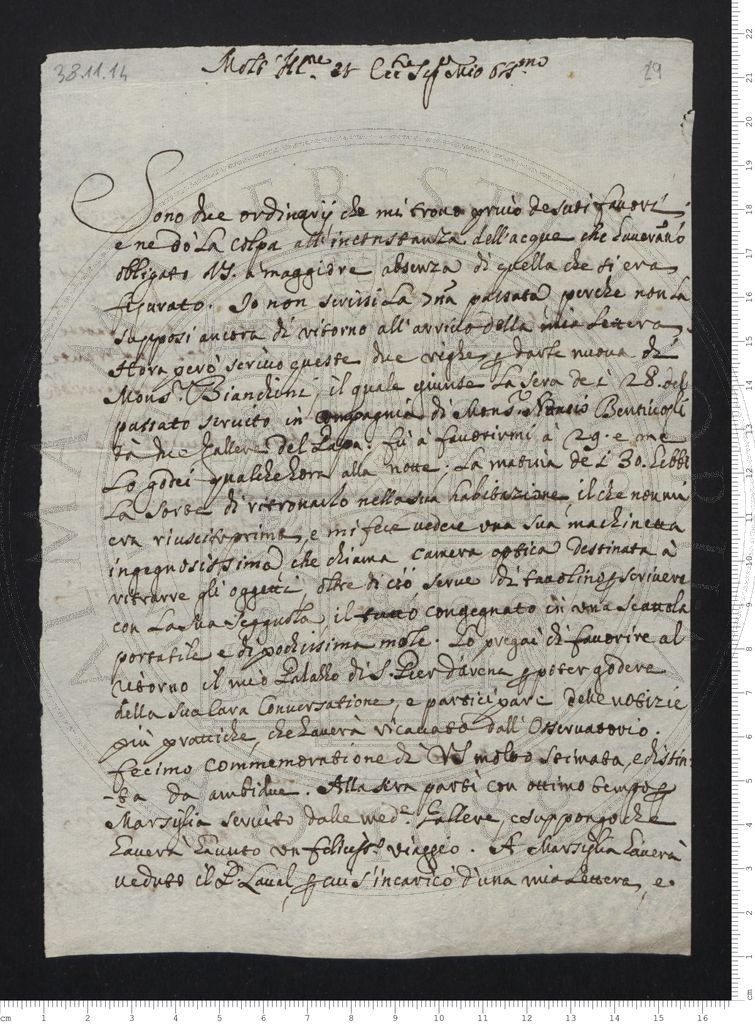 38.11.14
29
Molt' Ill.re et Ecc. Sig.r Mio Oss.mo
Sono due ordinarij che mi trovo privo de suoi favori,
e ne dò la colpa all'incostanza dell'acque che haveranno
obligato VS. a maggiore absenza di quella che si era
figurato. Io non scrissi la passata perche non la
supposi ancora di ritorno all'arrivo della mia lettera.
Hora però scrivo queste due righe p darle nuova di
Mons.r Bianchini, il quale giunse la sera de i 28. del
passato servito in compagnia di Mons.r Nuncio Bentivogli
dà due Gallere del Papa. fù a favorirmi à 29. e me
lo godei qualche hora alla notte. La matina de i 30. hebbi
la sorte di ritrovarlo nella sua habitazione, il che non mi
era riuscito prima, e mi fece vedere una sua machinetta
ingegnosissima, che chiama camera optica destinata à
ritrarre gli oggetti, oltre di ciò serve di tavolino p scrivere
con la sua seggiola, il tutto congegnato in una scattola
portatile e di pochissima mole. Lo pregai di favorire al
ritorno il mio Palazzo di S. Pier d'arena p poter godere
della sua cara conversatione, e participare delle notizie
più prattiche, che haverà ricavato dall'Osservatorio.
fecimo commemoratione di VS molto stimata, e distin-
-ta da ambidue. Alla sera partì con ottimo tempo p
Marsiglia servito dalle med.e Gallere, e suppongo che
haverà havuto un feliciss.o viaggio. A Marsiglia haverà
veduto il P. Laval, p cui s'incaricò d'una mia lettera, e